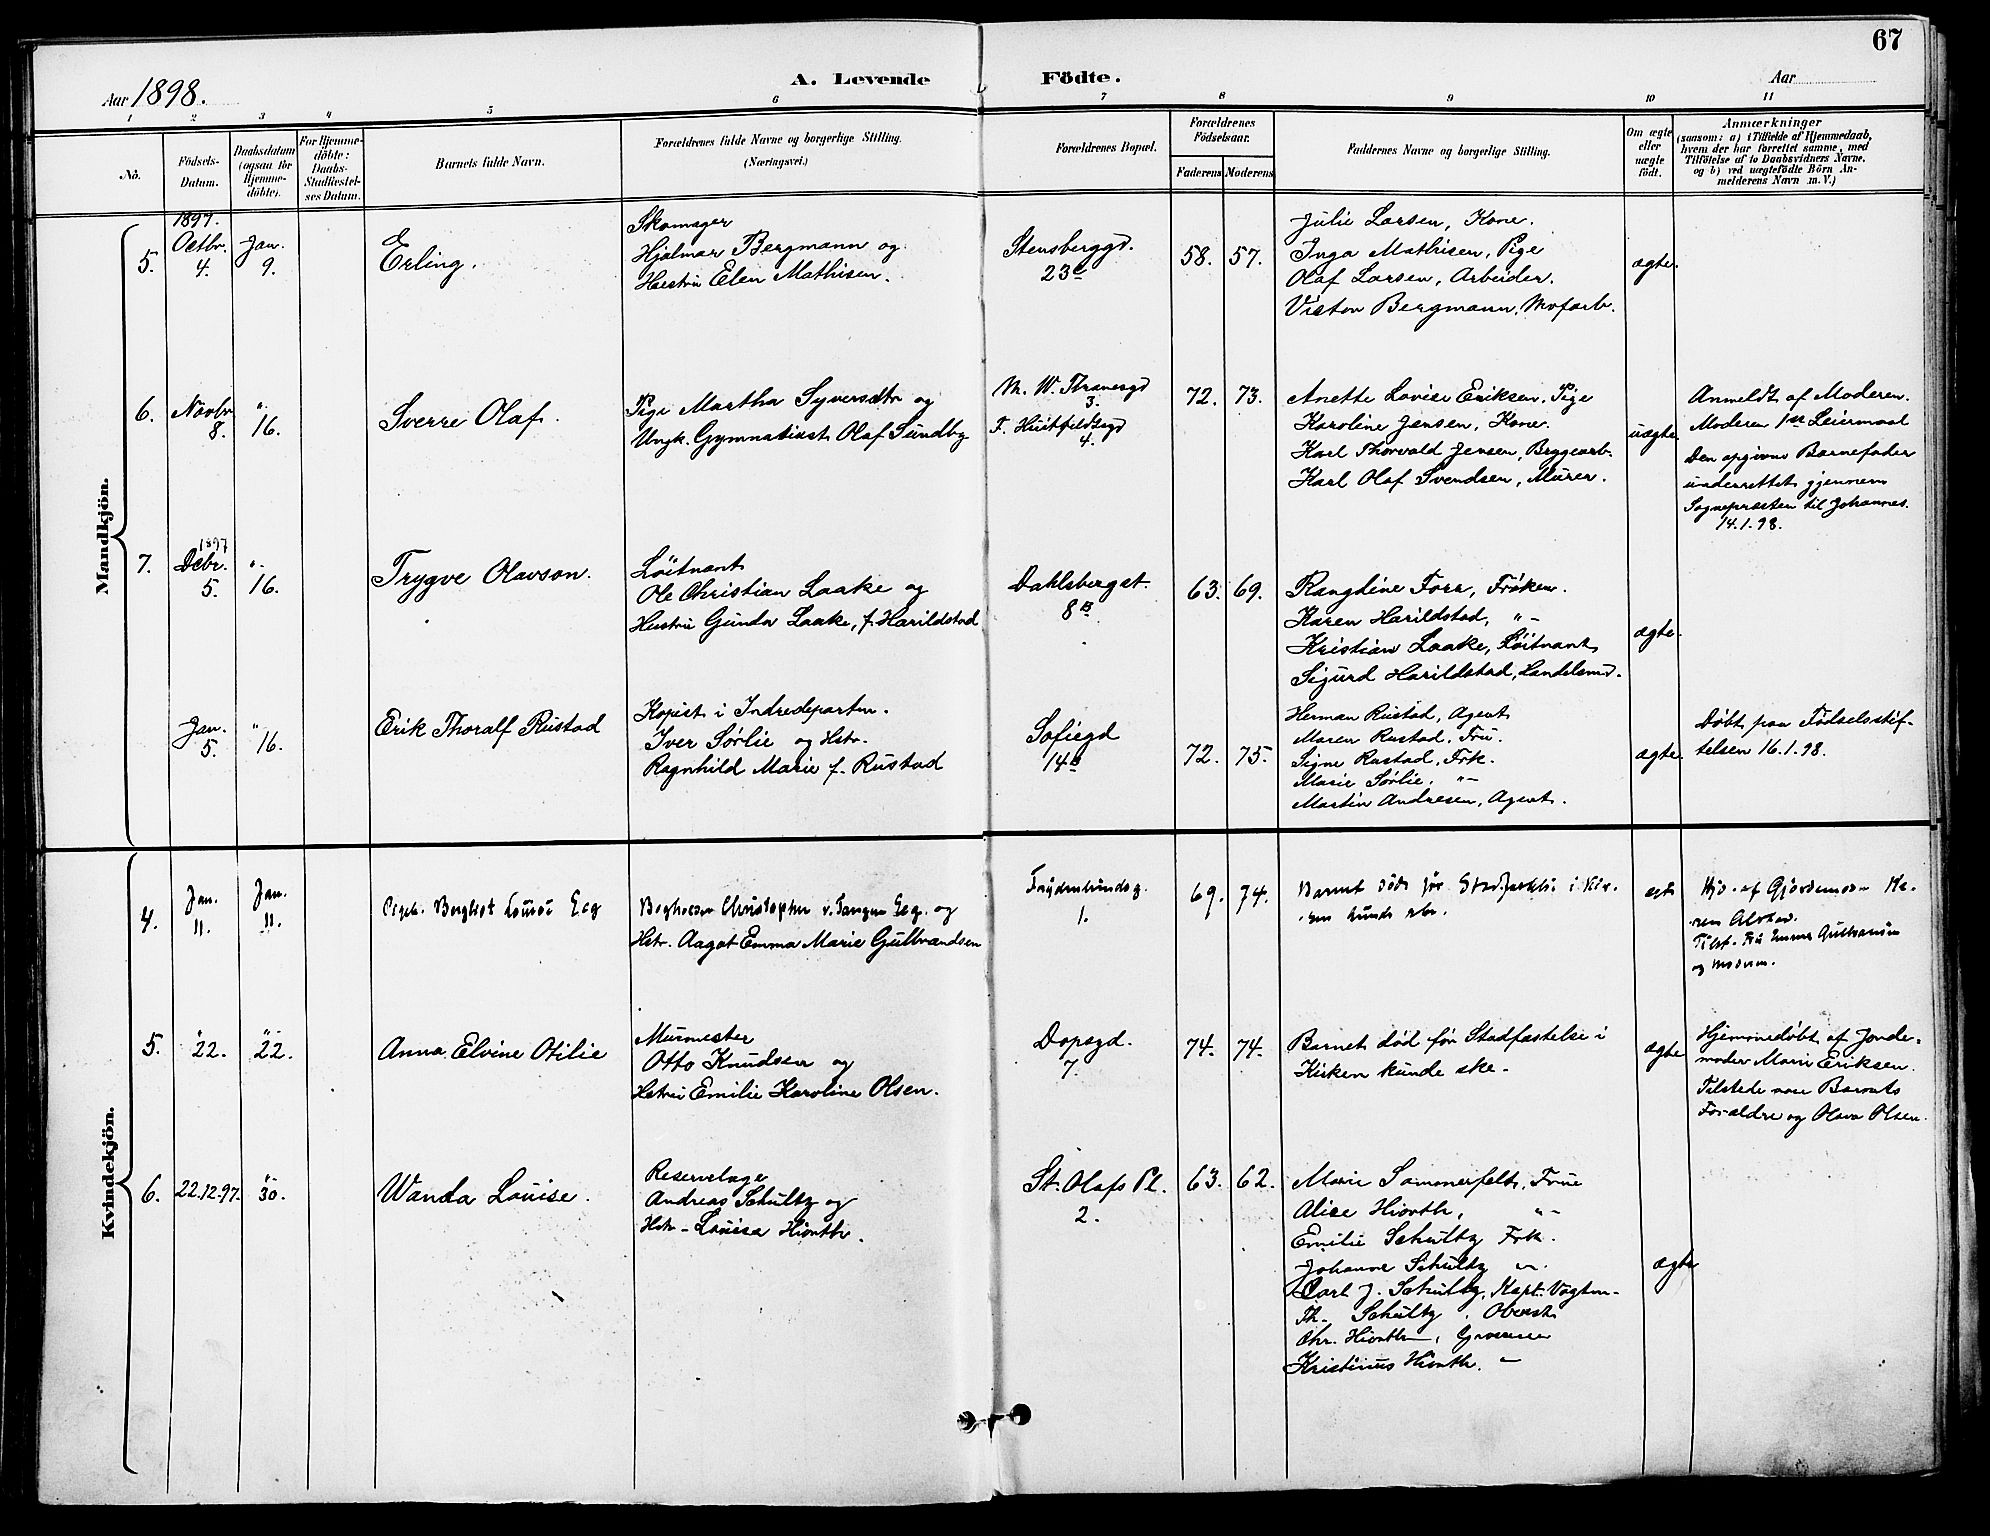 67
Aar 1898.
A. Levende Födte.
Aar
1 2 3 4 5 6 7 8 9 10 11
No.
Födsels-Datum.
Daabsdatum (ogsaa for Hjemme-döbte).
For Hjemme-döbte: Daabs-Stadfæstel-ses Datum.
Barnets fulde Navn.
Forældrenes fulde Navne og borgerlige Stilling.
(Næringsvei.)
Forældrenes Bopæl.
Forældrenes Födselsaar.
Faderens Moderens
Faddernes Navne og borgerlige Stilling.
Om ægte eller uægte födt.
Anmærkninger
(saasom: a) i Tilfælde af Hjemmedaab,
hvem der har forrettet samme, med
Tilföielse af to Daabsvidners Navne,
og b) ved uægtefödte Börn An-
melderens Navn m. V.)
Mandkjön.
5.
1897.
Octbr.
4.
Jan.
9.
Erling.
Skomager
Hjalmar Bergmann og
Hustru Elen Mathisen.
Stensberggd.
23c
58. 57.
Julie Larsen, Kone.
Inga Mathisen, Pige
Olaf Larsen, Arbeider.
Victor Bergmann,
ægte.
6.
Novbr
8.
"
16.
Sverre Olaf.
Pige Martha Syversdtr og
Ungk. Gymnasiast Olaf Sundby
M. W. Thranesgd
3.
F. Huitfeldtsgd
4.
72. 73.
Anette Lovise Eriksen, Pige
Karoline Jensen, Kone.
Karl Thorvald Jensen, Bryggearb.
Karl Olaf Svendsen, Murer.
uægte.
Anmeldt af Moderen.
Moderen 1ste Leiermaal
Den opgivne Barnefader
underrettet gjennem
Sognepræsten til Johannes.
14.1.98.
7.
1897
Decbr.
5.
"
16.
Trygve Olavson.
Löitnant
Ole Christian Laake og
Hustru Gunda Laake, f. Harildstad
Dahlsbergst.
8B
63. 69.
Rangdine Forr, Fröken.
Karen Harildstad, "-
Kristian Laake, Löitnant
Sigurd Harildstad, Landelsmd.
ægte.
Jan.
5.
"
16.
Erik Thoralf Rustad
Kopist i Indredeparten.
Iver Sørlie og Hstr.
Ragnhild Marie f. Rustad
Sofiegd
14B
72. 75.
Herman Rustad, Agent
Maren Rustad, Fru.
Signe Rustad, Frk.
Marie Sørlie, "-
Martin Andresen, Agent.
ægte.
Døbt paa Fødselsstif-
telsen 16.1.98.
Kvindekjön.
4.
Jan.
11.
Jan.
11.
Borghot Louise Egg
Bogholder Christopher v. Tangen Egg. og
Hstr. Aagot Emma Marie Gulbrandsen
Frydenlundsg.
1.
69. 74.
Barnet døde før Stadfæstelse i Kir-
ken kunde ske.
Hjd. af Gjordemoder Ka-
ren
Tilst. Fru Emma Gulbransen
og Moderen.
5.
"
22.
"
22.
Anna Elvine Otilie
Murmester
Otto Knudsen og
Hstru Emilie Karoline Olsen.
Dopsgd.
7.
74. 74.
Barnet død før Stadfæstelse i
Kirken kunde ske.
ægte
Hjemmedøbt af Jorde-
moder Marie Eriksen.
Tilstede vare Barnets
Forældre og Olava Olsen.
6.
22.12.97.
"
30.
Wanda Louise.
Reservelæge
Andreas Schultz og
Hstr. Louisa Hiorth.
St. Olafs Pl.
2.
63. 62.
Marie Sommerfelt, Frue
Alice Hiorth, "-
Emilie Schultz Frk.
Johanne Schultz "-
Carl J. Schultz, Kapt. Vagtm-
Th. Schultz, Oberst
Chr. Hiorth, Groserer
Kristinus Hiorth. "-
ægte